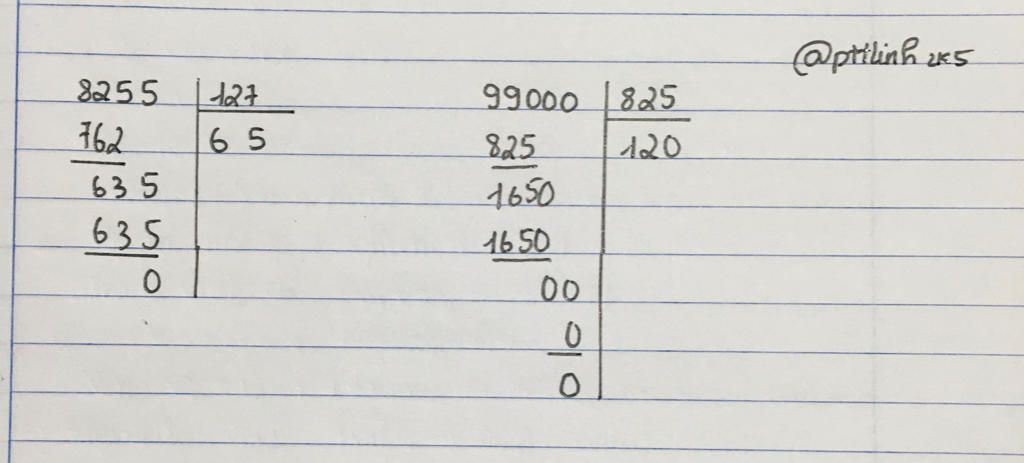 @ptilinh 2k5
8255 127
762 65
635
635
0
99000 825
825 120
1650
1650
00
0
0